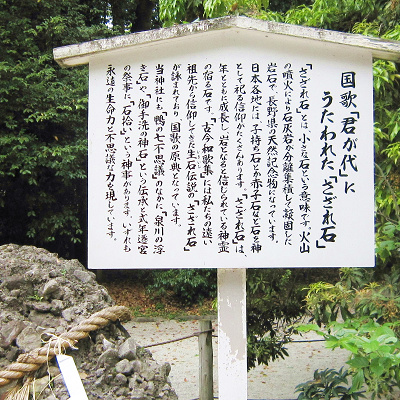 国歌「君が代」に
うたわれた、「さざれ石」
「さざれ石」とは、小さな石という意味です。火山
の噴火により石灰岩が分離集積して凝固した
岩石で、長野県の天然記念物になっています。
日本各地には、子持ち石とか赤子石など石を神
として祀る信仰がたくさんあります。「さざれ石」は、
年とともに成長し、岩となると信じられている神霊
の宿る石です。「古今和歌集」には私たちの遠い
祖先から信仰してきた生石伝説の、「さざれ石」
が詠まれており、国歌の原典となっています。
当神社にも、「鴨の七不思議」のなかに「泉川の浮
き石」や、「御手洗の神石」という伝承と式年遷宮
の祭事に、「石拾」という神事があります。いずれも
永遠の生命力と不思議な力を現しています。